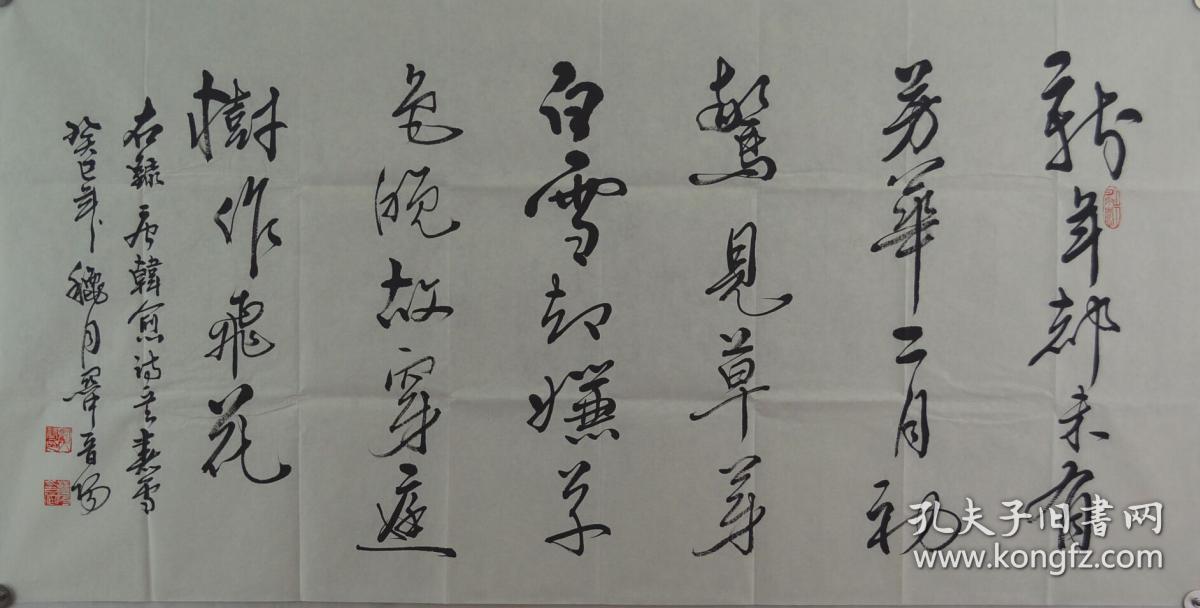 新年都未有
芳華二月初
驚見草芽
白雪却嫌春
色晚故穿庭
樹作飛花
右錄唐韓愈詩春雪
癸巳年穐月晋陽
孔夫子旧书网
www.kongfz.com